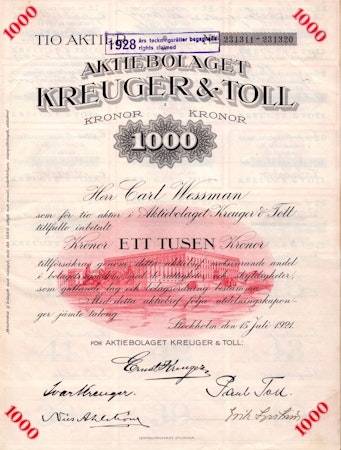 1000
1000
TIO AKTIER
1928 års teckningsrätter begagnade
rights claimed
231311-231320
AKTIEBOLAGET
KREUGER & TOLL
KRONOR KRONOR
1000
Herr Carl Wessman
som för tio aktier i Aktiebolaget Kreuger & Toll
tillfullo inbetalt
Kronor ETT TUSEN Kronor
tillförsäkras genom detta aktiebref motsvarande andel
i bolaget med de rättigheter och skyldigheter,
som gällande lag och bolagsordning bestämma.
Med detta aktiebref följa utdelningskupon-
ger jämte talong.
Stockholm den 15 Juli 1921.
FÖR AKTIEBOLAGET KREUGER & TOLL:
Ernst Kreuger
Ivar Kreuger. Paul Toll
Nils Ahlström
1000
1000